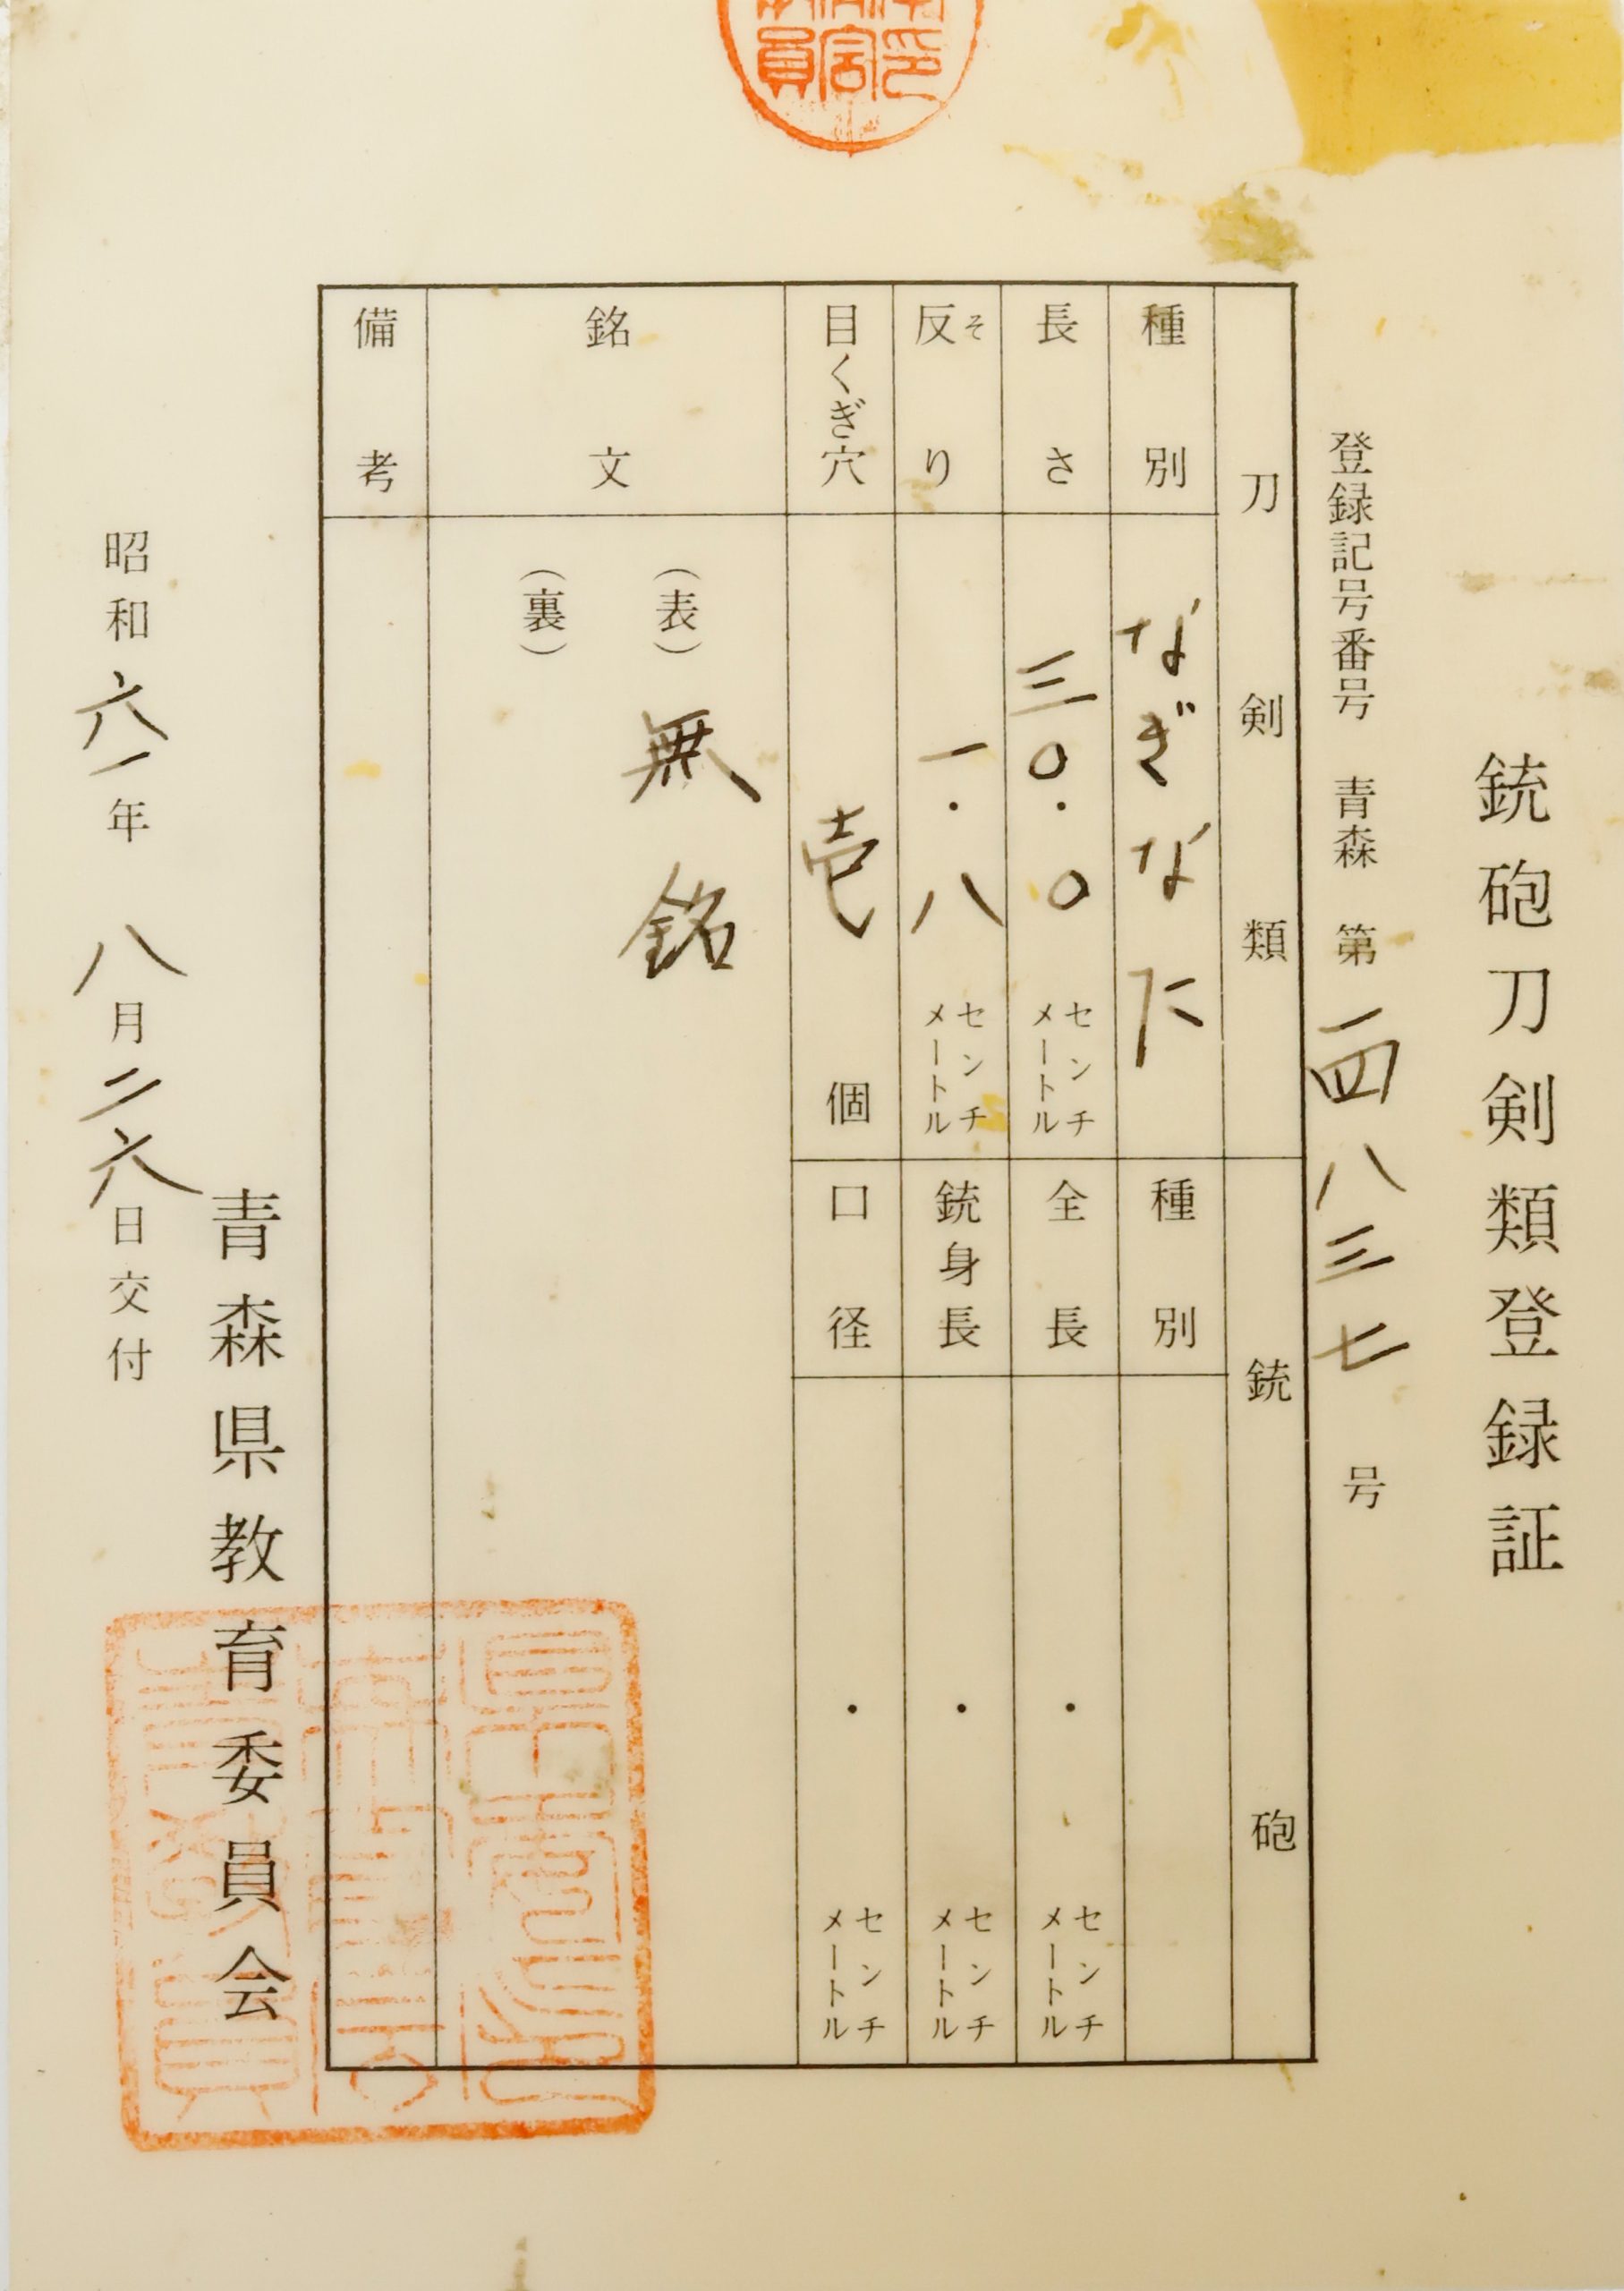 銃砲刀剣類登録証
登録記号番号 青森 第一四八三七号
刀剣類
種別 なぎなた
長さ 三〇・〇 センチメートル
反り そ 一・八 センチメートル
目くぎ穴 壱 個
銘文
(表) 無銘
(裏)
備考
銃砲
種別
全長 ・ センチメートル
銃身長 ・ センチメートル
口径 ・ センチメートル
昭和六一年八月二六日交付
青森県教育委員会